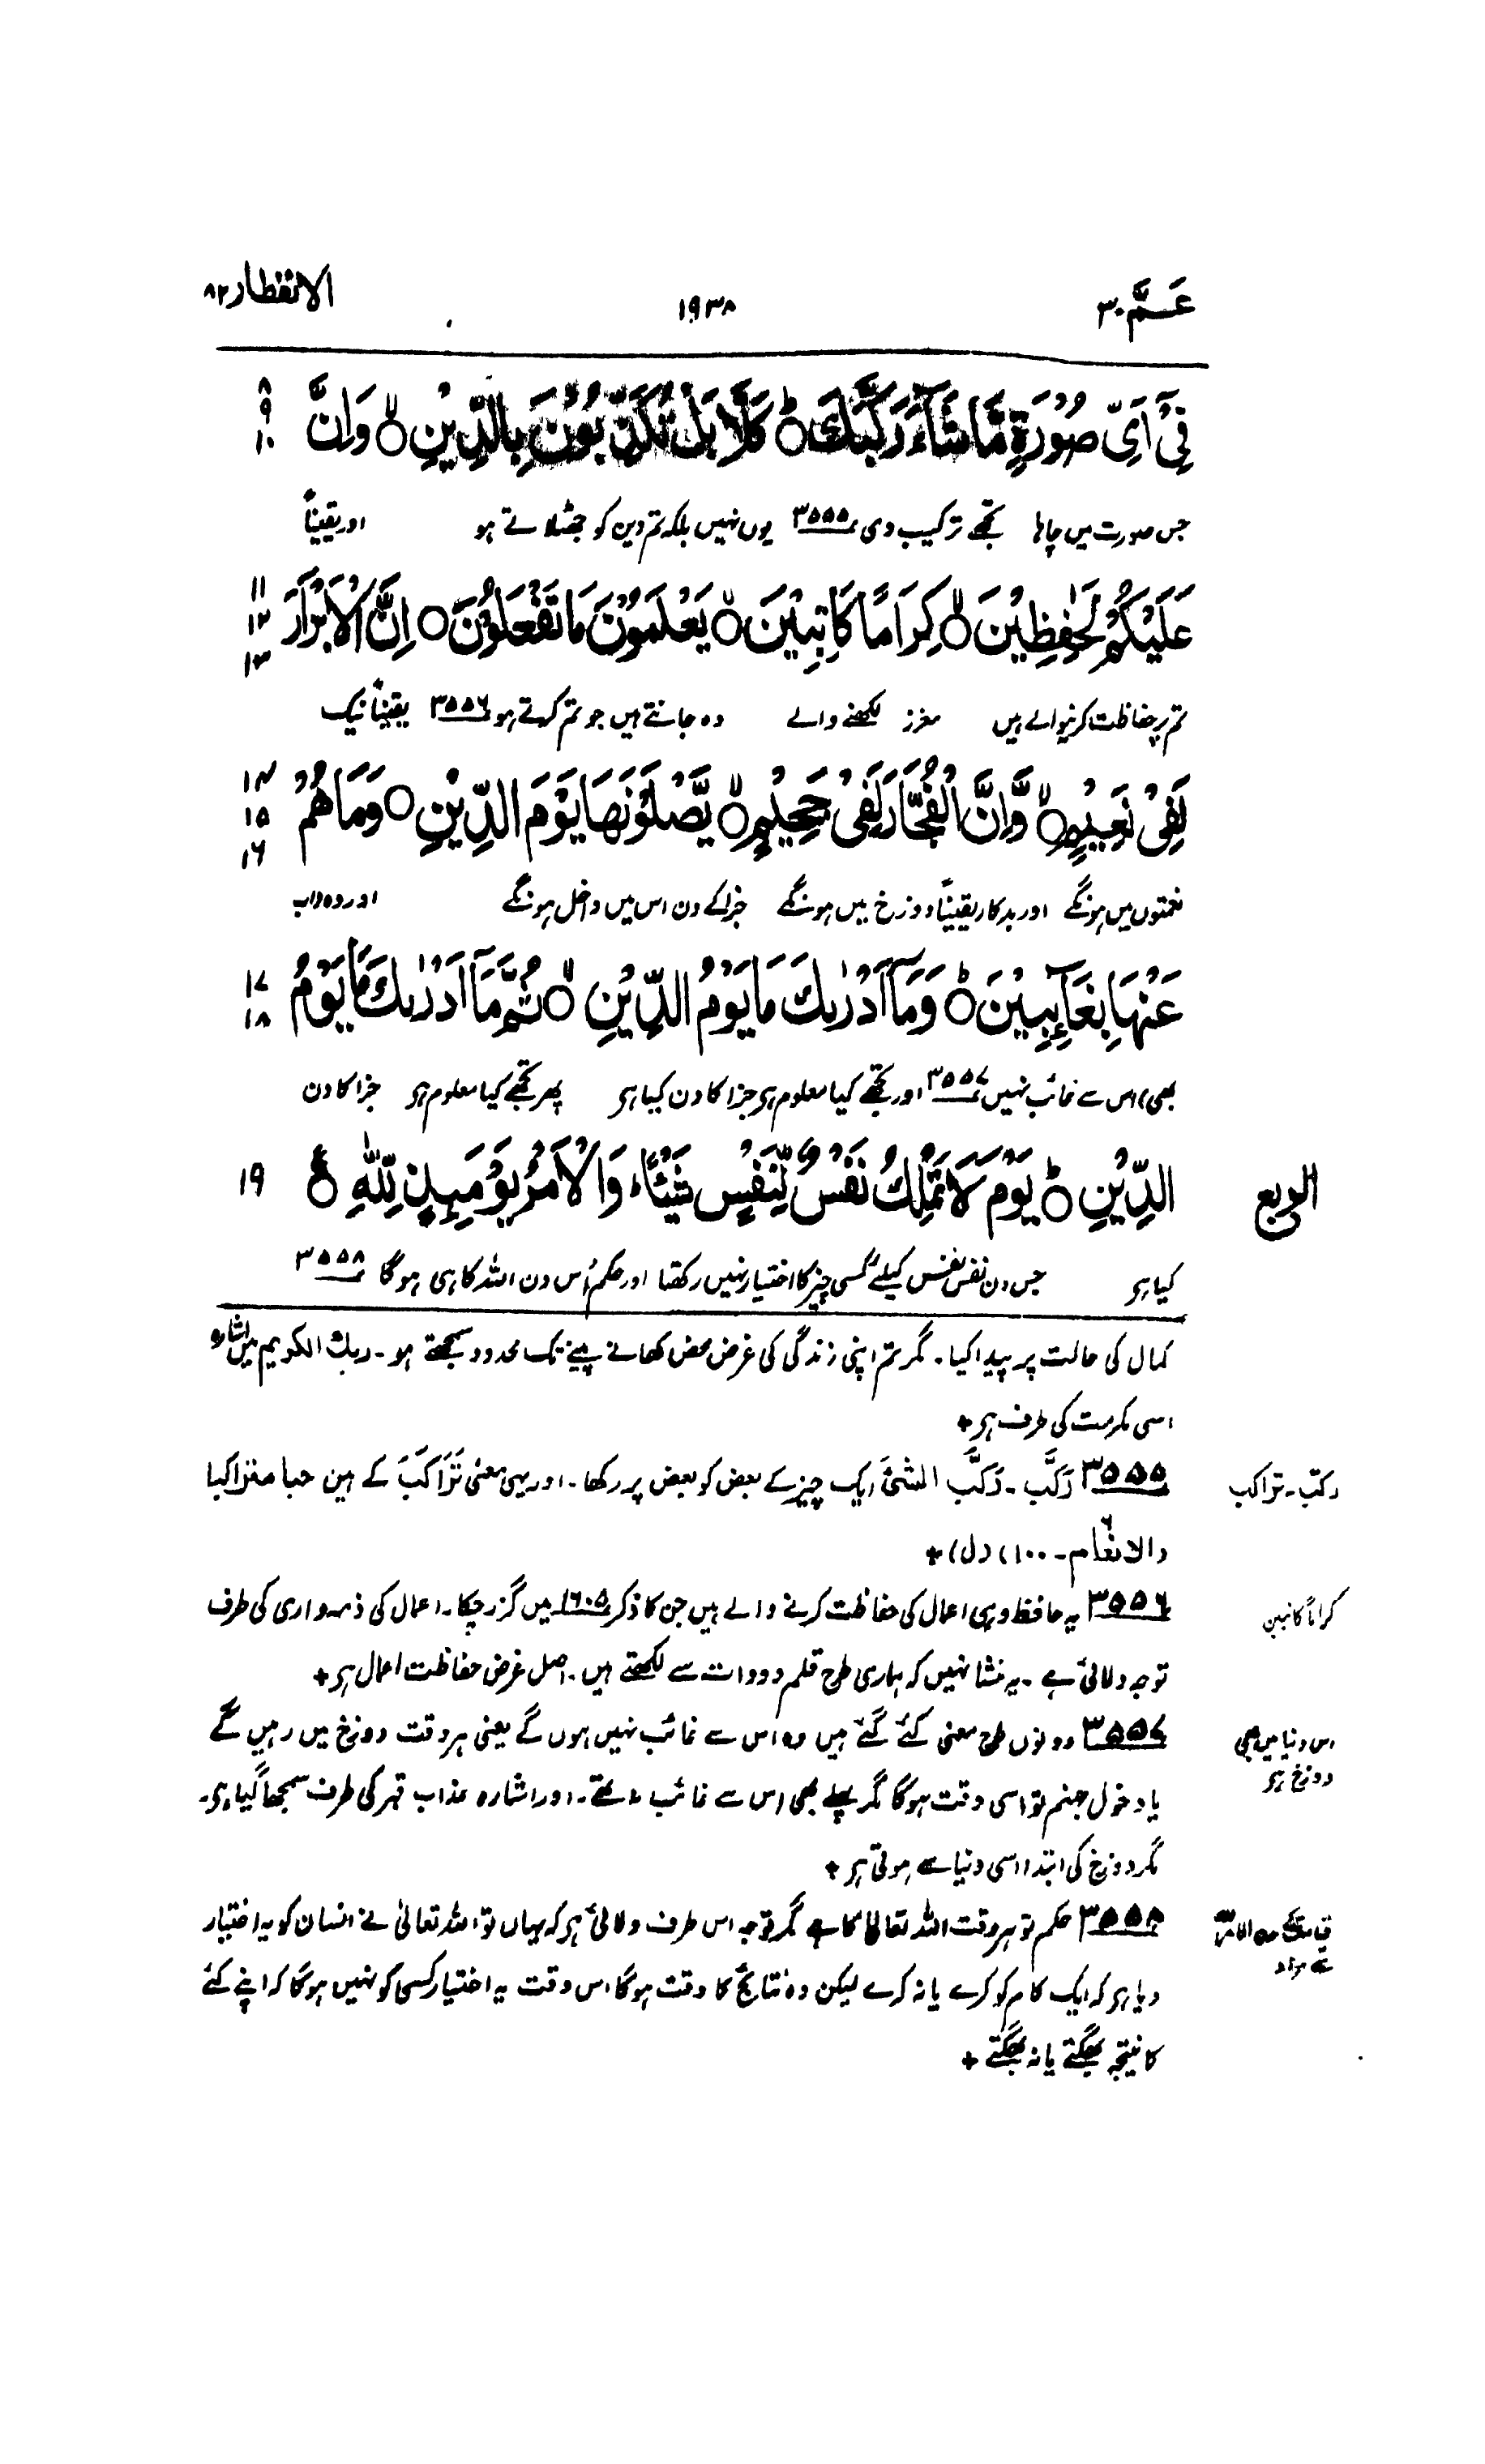 عَمَّ ۳۰
۱۹۳۸
الانفطار ۸۲
فِیْۤ اَیِّ صُوْرَةٍ مَّا شَآءَ رَكَّبَكَ ؕ۝ كَلَّا بَلْ تُكَذِّبُوْنَ بِالدِّیْنِ ۙ۝ وَاِنَّ
۸
۹
۱۰
جس صورت میں چاہا تجھے ترکیب دی ۳۵۵۵ یوں نہیں بلکہ تم دین کو جھٹلاتے ہو اور یقیناً
عَلَیْكُمْ لَحٰفِظِیْنَ ۙ۝ كِرَامًا كَاتِبِیْنَ ۙ۝ یَعْلَمُوْنَ مَا تَفْعَلُوْنَ ۝ اِنَّ الْاَبْرَارَ
۱۱
۱۲
۱۳
تم پر حفاظت کرنیوالے ہیں معزز لکھنے والے وہ جانتے ہیں جو تم کرتے ہو ۳۵۵۶ یقیناً نیک
لَفِیْ نَعِیْمٍ ۙ۝ وَّاِنَّ الْفُجَّارَ لَفِیْ جَحِیْمٍ ۙ۝ یَّصْلَوْنَهَا یَوْمَ الدِّیْنِ ۝ وَمَا هُمْ
۱۴
۱۵
۱۶
نعمتوں میں ہونگے اور بدکار یقیناً دوزخ میں ہونگے جزا کے دن اس میں داخل ہونگے اور وہ (اب
عَنْهَا بِغَآىِٕبِیْنَ ؕ۝ وَمَاۤ اَدْرٰىكَ مَا یَوْمُ الدِّیْنِ ۙ۝ ثُمَّ مَاۤ اَدْرٰىكَ مَا یَوْمُ
۱۷
۱۸
بھی) اس سے غائب نہیں ۳۵۵۷ اور تجھے کیا معلوم ہی جزا کا دن کیا ہی پھر تجھے کیا معلوم ہی جزا کا دن
الدِّیْنِ ؕ۝ یَوْمَ لَا تَمْلِكُ نَفْسٌ لِّنَفْسٍ شَیْئًا ؕ وَالْاَمْرُ یَوْمَىِٕذٍ لِّلّٰهِ ۝ع
۱۹
الربع
کیا ہی جس دن نفس نفس کیلئے کسی چیز کا اختیار نہیں رکھتا اور حکم اُس دن اللہ کا ہی ہوگا ۳۵۵۸
کمال کی حالت پر پیدا کیا۔ مگر تم اپنی زندگی کی غرض محض کھانے پینے تک محدود سمجھتے ہو۔ ربک الکریم میں اشارہ
اسی مکرمت کی طرف ہی +
۳۵۵۵ رَکَّب۔ رَکَّبَ الشئَ ایک چیز کے بعض کو بعض پر رکھا۔ اور یہی معنی تَرَاکَبَ کے ہیں حبا متراکبا
رکّب۔ تراکب
(الانعام۔ ۱۰۰) (ل) +
۳۵۵۶ یہ حافظ وہی اعمال کی حفاظت کرنے والے ہیں جن کا ذکر ۱۶۰۵ میں گزر چکا۔ اعمال کی ذمہ واری کی طرف
کراماً کاتبین
توجہ دلائی ہے۔ یہ منشا نہیں کہ ہماری طرح قلم دودات سے لکھتے ہیں۔ اصل غرض حفاظت اعمال ہی +
۳۵۵۷ دونوں طرح معنی کئے گئے ہیں وہ اس سے غائب نہیں ہوں گے یعنی ہر وقت دوزخ میں رہیں گے
اس دنیا میں بھی
دوزخ ہی
یا دخول جہنم تو اسی وقت ہوگا مگر پہلے بھی اس سے غائب نہ تھے۔ اور اشارہ عذاب قبر کی طرف سمجھا گیا ہی۔
مگر دوزخ کی ابتدا اسی دنیا سے ہوتی ہی +
۳۵۵۸ حکم تو ہر وقت اللہ تعالیٰ کا ہے مگر توجہ اس طرف دلائی ہی کہ یہاں تو اللہ تعالیٰ نے انسان کو یہ اختیار
سے مراد
دیا ہی کہ ایک کام کو کرے یا نہ کرے لیکن وہ نتائج کا وقت ہوگا اس وقت یہ اختیار کسی کو نہیں ہوگا کہ اپنے کئے
کا نتیجہ بھگتے یا نہ بھگتے +